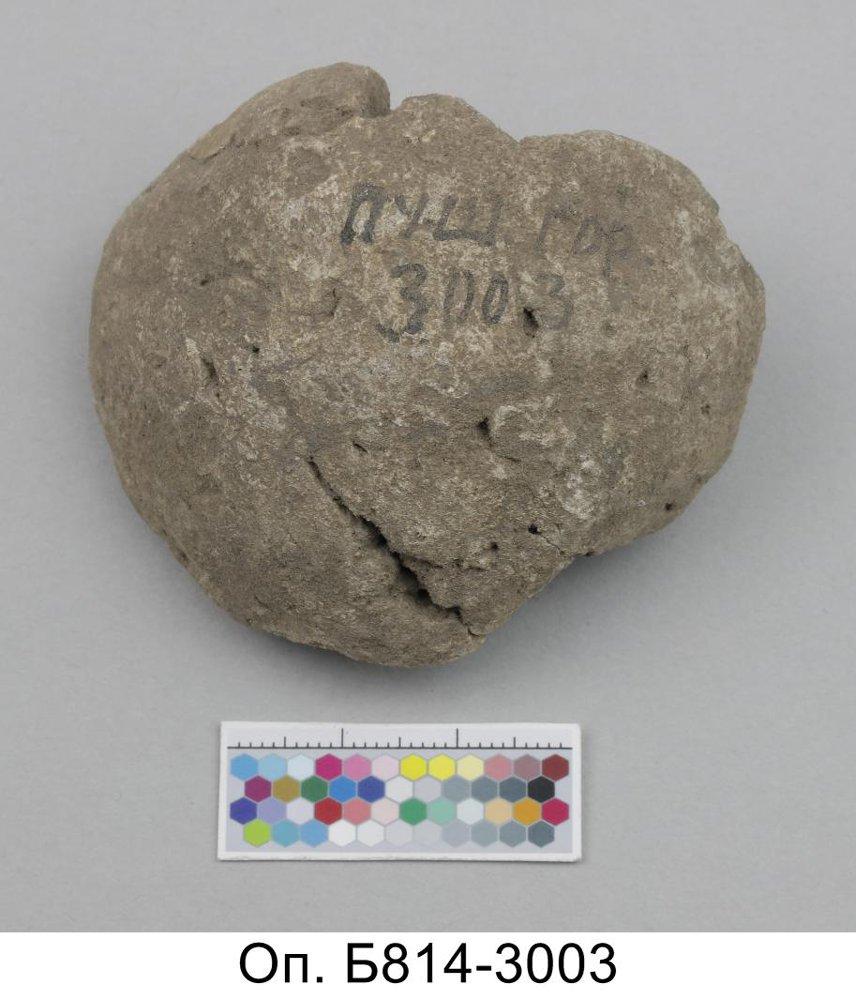 ПУШ ГОР.
3003
Оп. Б814-3003